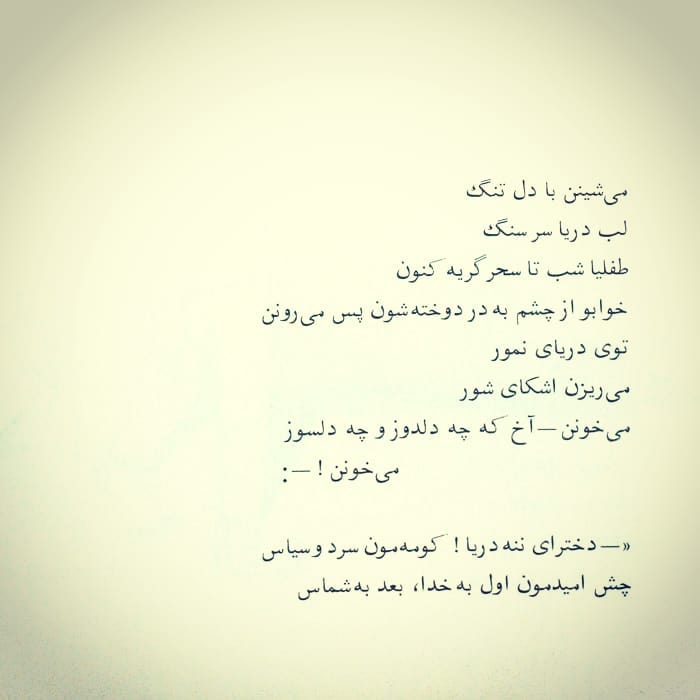 می‌شینن با دل تنگ
لب دریا سر سنگ
طفلیا شب تا سحر گریه کنون
خوابو از چشم به در دوخته‌شون پس می‌رونن
توی دریای نمور
می‌ریزن اشکای شور
می‌خونن — آخ که چه دلدوز و چه دلسوز
می‌خونن ! — :
«— دخترای ننه دریا ! کومه‌مون سرد و سیاس
چش امیدمون اول به خدا، بعد به شماس